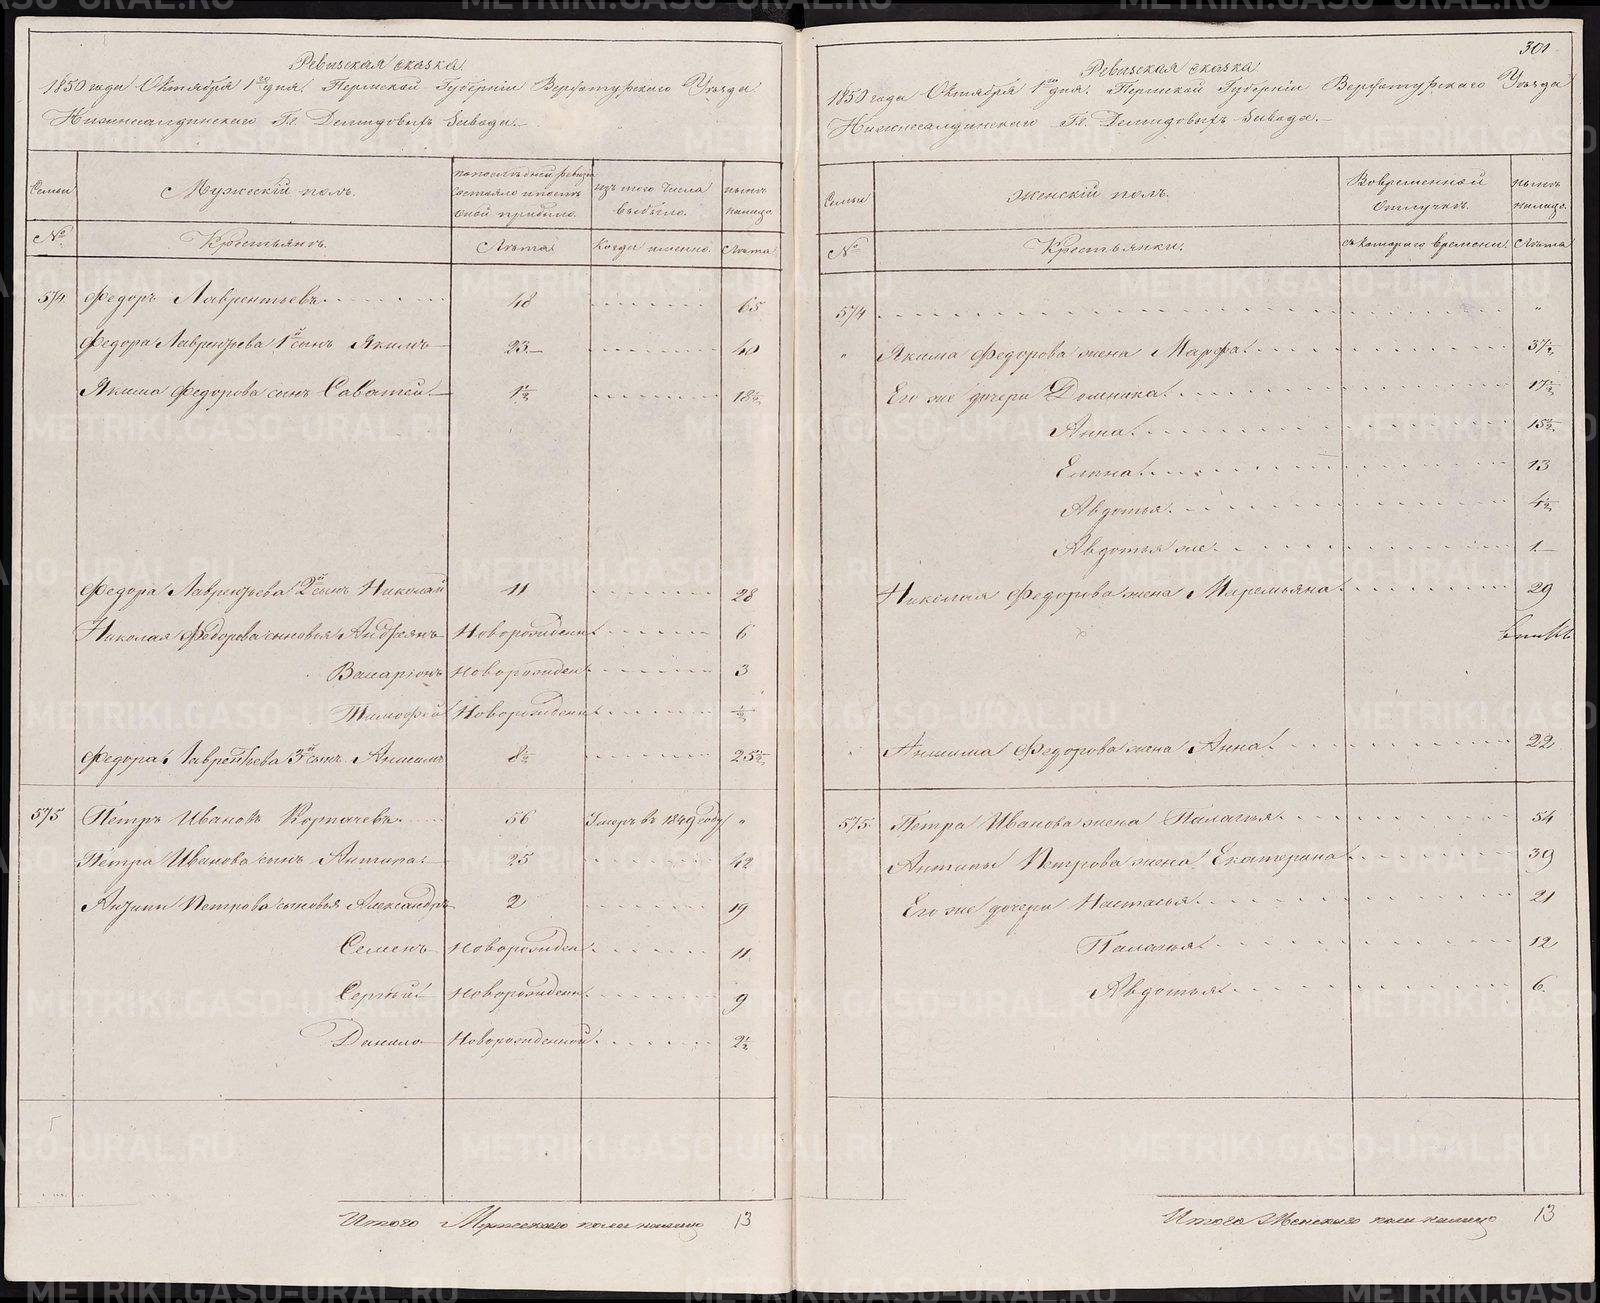 Ревизская сказка
1850 года Октября 1го дня. Пермской Губерніи Верхотурскаго Уѣзда
Нижнесалдинскаго Гг. Демидовыхъ Завода.
Семьи
Мужескій полъ.
по последней ревизіи состояло и после оной прибыло.
изъ того числа выбыло.
нынѣ налицо.
№
Крестьянъ.
Лѣта
Когда именно.
Лѣта
574 Федоръ Лаврентьевъ 48 65
Федора Лаврентьева 1й сынъ Якимъ 23 40
Якима Федорова сынъ Саватей 1½ 18½
Федора Лаврентьева 2й сынъ Николай 11 28
Николая Федорова сыновья Андреянъ Новорожден. 6
Валаріонъ Новорожден. 3
Тимофей Новорожден. ½
Федора Лаврентьева 3й сынъ Анисимъ 8½ 25½
575 Петръ Ивановъ Корпачевъ 56 Умеръ въ 1849 году "
Петра Иванова сынъ Антипа 25 42
Антипы Петрова сыновья Александръ 2 19
Семенъ Новорожден. 11
Сергѣй Новорожден. 9
Данило Новорожденной 2½
Итого Мужескаго пола налицо 13
301
Ревизская сказка
1850 года Октября 1го дня. Пермской Губерніи Верхотурскаго Уѣзда
Нижнесалдинскаго Гг. Демидовыхъ Завода.
Семьи
Женскій полъ.
Во временной отлучкѣ.
нынѣ налицо.
№
Крестьянки.
съ котораго времени.
Лѣта
574 "
" Якима Федорова жена Марфа 37½
Его же дочери Домника 17½
Анна 15½
Елена 13
Авдотья 4½
Авдотья же 1
Николая Федорова жена Маремьяна 29
Анисима Федорова жена Анна 22
575 Петра Иванова жена Палагья 54
Антипы Петрова жена Екатерина 39
Его же дочери Настасья 21
Палагья 12
Авдотья 6
Итого Женскаго пола налицо 13
METRIKI.GASO-URAL.RU